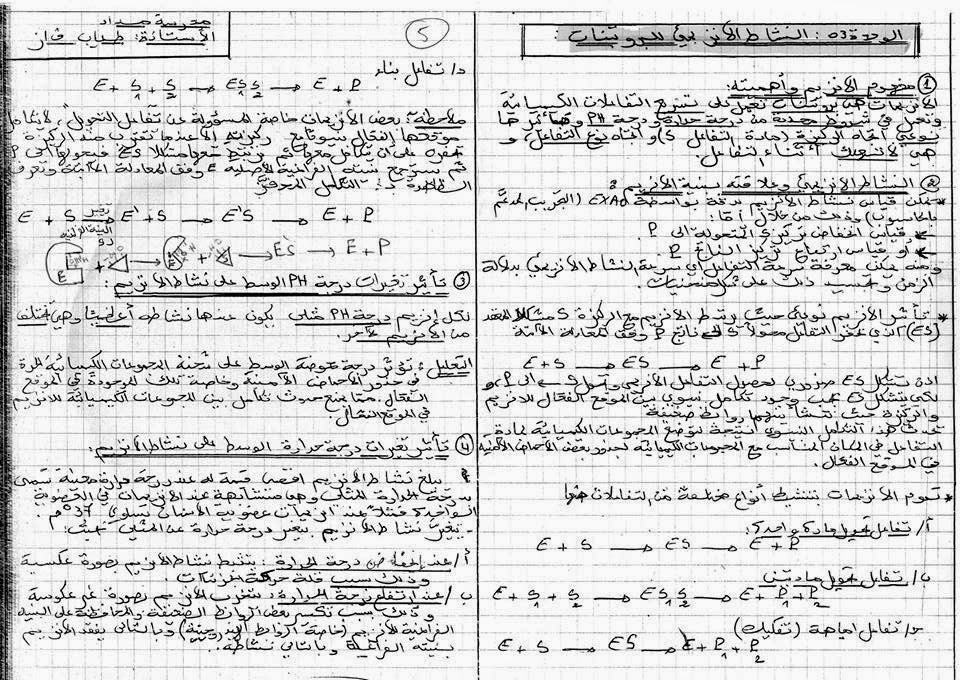 الوحدة 03: النشاط الأنزيمي للبروتينات:
① مفهوم الأنزيم وأهميته:
الأنزيمات هي بروتينات تعمل على تسريع التفاعلات الكيميائية
وتعمل في شروط محددة من درجة حرارة ودرجة PH ولها تأثير
نوعي اتجاه الركيزة (مادة التفاعل S) واتجاه نوع التفاعل، و
هي لا تستهلك أثناء التفاعل.
② النشاط الأنزيمي وعلاقته ببنية الأنزيم:
* يمكن قياس نشاط الأنزيم بدقة بواسطة ExAO (التجريب المدعم
بالحاسوب) وذلك من خلال أما:
← قياس انخفاض تركيز S المتحولة إلى P.
← أو قياس ارتفاع تركيز الناتج P
ومنه يمكن معرفة سرعة التفاعل أي سرعة النشاط الأنزيمي بدلالة
الزمن و ذلك على شكل منحنيات.
* تأثير الأنزيم نوعي حيث يرتبط الأنزيم مع الركيزة S مشكلا المعقد
(ES) الذي يحفز التفاعل محولا S إلى ناتج P وفق المعادلة الآتية
E + S → ES → E + P
اذن تشكل ES ضروري لحصول التفاعل الأنزيمي وتحول S إلى P، و
لكي يتشكل ES يجب وجود تكامل بنيوي بين الموقع الفعال للأنزيم
والركيزة حيث تنشأ بينهما روابط ضعيفة
يحدث هذا التكامل البنيوي نتيجة لتوضع المجموعات الكيميائية لمادة
التفاعل في المكان المناسب مع المجموعات الكيميائية لجذور بعض الأحماض الأمينية
في الموقع الفعال.
* تقوم الأنزيمات بتنشيط أنواع مختلفة من التفاعلات
أ/ تفاعل تحويل مادة واحدة:
E + S → ES → E + P
ب/ تفاعل تحويل مادتين
E + S1 + S2 → ES1S2 → E + P1 + P2
ج/ تفاعل اماهة (تفكيك)
E + S → ES → E + P1 + P2
5
مدرسة
الأستاذة:
د/ تفاعل بناء
E + S1 + S2 → ES1S2 → E + P
ملاحظة: بعض الأنزيمات خاصة المسؤولة عن تفاعل التحويل، لا يتكامل
موقعها الفعال بنيويا مع ركيزته إلا عندما تقترب منه الركيزة
على أن يتكامل معها ثم يرتبط معها مشكلا E'S فيحولها إلى P
ثم يسترجع شكله الفراغية الأصلية E وفق المعادلة الآتية وتعرف
الظاهرة بـ: "التكامل المحفز"
E + S تغير البنية الفراغية → E' + S → E'S → E + P
→ ES → E + P
③ تأثير تغيرات درجة PH الوسط على نشاط الأنزيم:
لكل إنزيم درجة PH مثلى يكون عندها نشاطه أعظميا وهي تختلف
من الأنزيم لآخر.
التعليل: تؤثر درجة حموضة الوسط على شحنة المجموعات الكيميائية الحرة
في جذور الأحماض الأمينية وخاصة تلك الموجودة في الموقع
الفعال. مما يمنع حدوث تكامل بين المجموعات الكيميائية للأنزيم
في الموقع الفعال
④ تأثير تغيرات درجة حرارة الوسط على نشاط الأنزيم:
* يبلغ نشاط الأنزيم أقصى قيمة له عند درجة حرارة معينة تسمى
بدرجة الحرارة المثلى وهي متشابهة عند الأنزيمات في العضوية
الواحدة فمثلا عند عضوية الانسان تساوي 37°م.
- يتغير نشاط الأنزيم بتغير درجة حرارة عن المثلى حيث:
أ/ عند انخفاض درجة الحرارة: يتثبط نشاط الأنزيم بصورة عكسية
وذلك بسبب قلة حركة الجزيئات.
ب/ عند ارتفاع درجة الحرارة: يتخرب الأنزيم بصورة غير عكوسية
وذلك بسبب تكسير بعض الروابط الضعيفة المحافظة على البنية
الفراغية للأنزيم (خاصة الروابط الهيدروجينية) وبالتالي يفقد الأنزيم
بنيته الفراغية وبالتالي نشاطه.